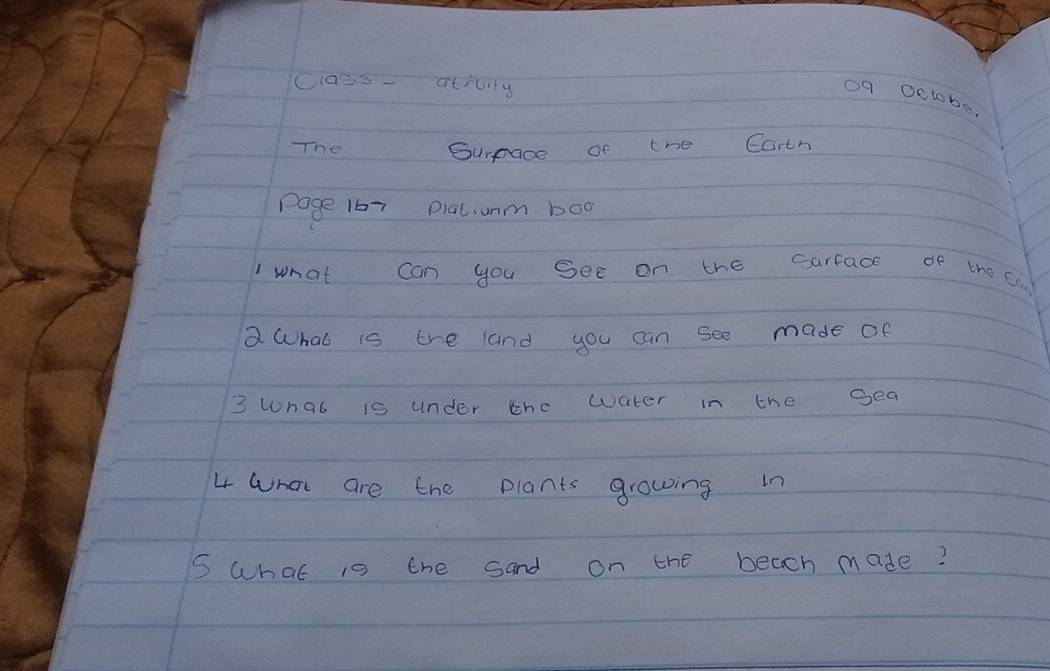 Class - ativity 09 October
The Surface of the Earth
Page 167 Platiunm boo
1 what can you see on the surface of the Ear
2 What is the land you can see made of
3 What is under the water in the sea
4 What are the plants growing in
5 What is the sand on the beach made ?